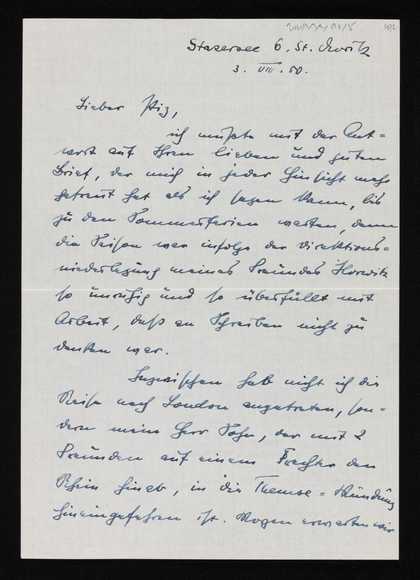 Stazersee b. St. Moritz
3. VIII. 50.
Lieber Pig,
ich mußte mit der Ant-
wort auf Ihren lieben und guten
Brief, der mich in jeder Hinsicht mehr
gefreut hat als ich sagen kann, bis
zu den Sommerferien warten, denn
die Saison war infolge der Direktions-
niederlegung meines Freundes Horwitz
so unruhig und so überfüllt mit
Arbeit, daß an Schreiben nicht zu
denken war.
Inzwischen hab nicht ich die
Reise nach London angetreten, son-
dern mein Herr Sohn, der mit 2
Freunden auf einem Frachter den
Rhein hinab, in die Themse-Mündung
hineingefahren ist. Morgen erwarten wir